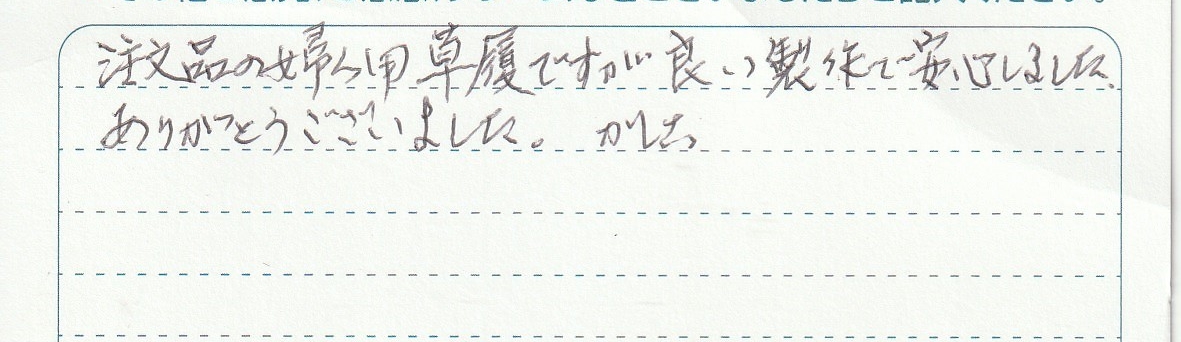 注文品の婦人用草履ですが良い製作で安心しました、
ありがとうございました。 かしこ